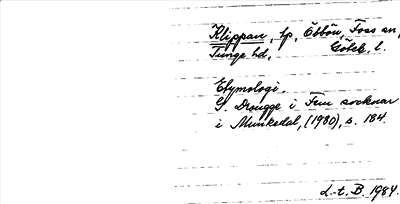 Klippan, lp, Öbbön, Foss sn,
Tunge hd, Göteb. l.
Etymologi.
G. Drougge i Fem socknar
i Munkedal, (1980), s. 184.
L.-t. B. 1984.